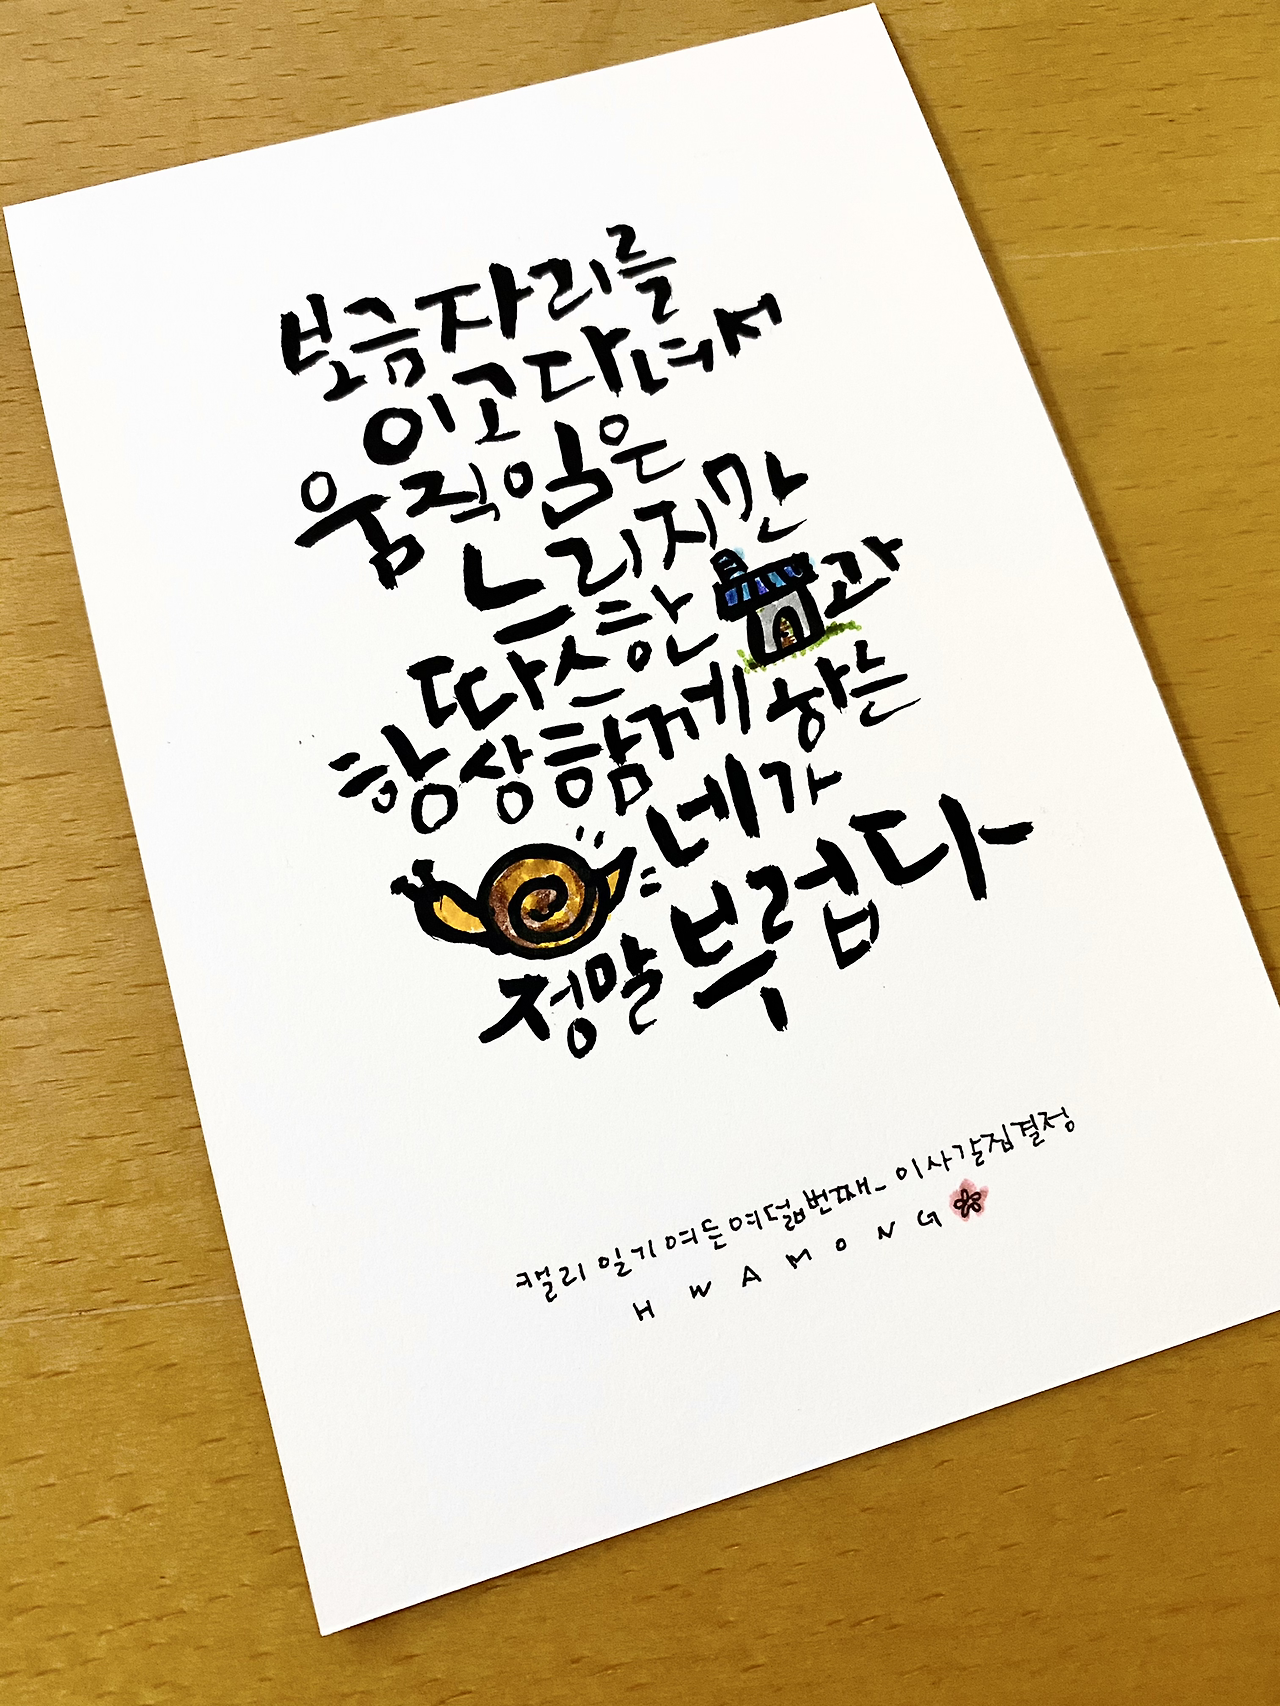 보금자리를
이고 다녀서
움직임은
느리지만
따스한 과
항상 함께 하는
네가
정말 부럽다
캘리 일기 여든여덟번째_ 이사갈집결정
HWAMONG